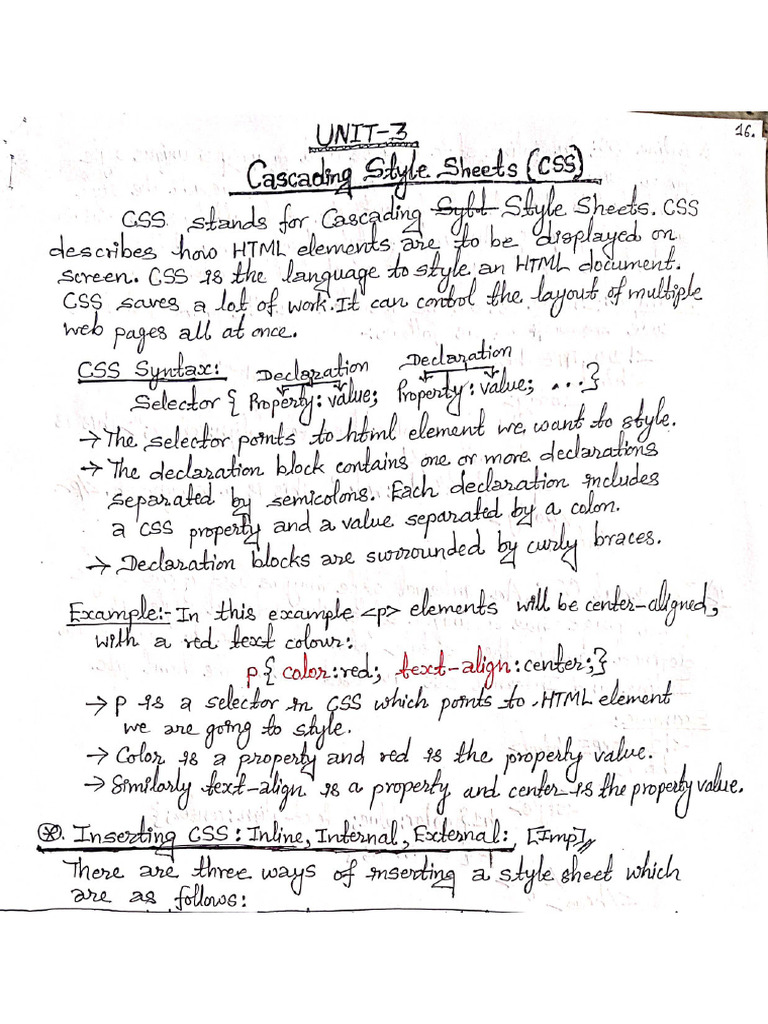 16.
UNIT-3
Cascading Style Sheets (CSS)
CSS stands for Cascading Sylt Style Sheets. CSS
describes how HTML elements are to be displayed on
screen. CSS is the language to style an HTML document.
CSS saves a lot of work. It can control the layout of multiple
web pages all at once.
CSS Syntax: Declaration Declaration
Selector { Property: value; Property: value; ...}
→ The selector points to html element we want to style.
→ The declaration block contains one or more declarations
separated by semicolons. Each declaration includes
a CSS property and a value separated by a colon.
→ Declaration blocks are surrounded by curly braces.
Example:- In this example <p> elements will be center-aligned,
with a red text colour:
p{ color:red; text-align:center;}
→ p is a selector in CSS which points to HTML element
we are going to style.
→ Color is a property and red is the property value.
→ Similarly text-align is a property and center is the property value.
⊛. Inserting CSS: Inline, Internal, External: [Imp]
There are three ways of inserting a style sheet which
are as follows: